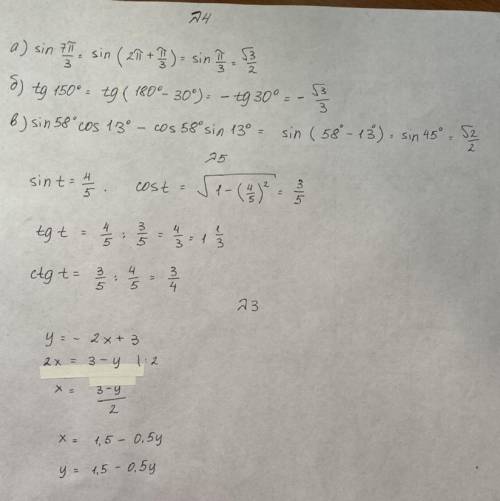 №4
а) sin 7π/3 = sin (2π + π/3) = sin π/3 = √3/2
б) tg 150° = tg (180° - 30°) = - tg 30° = - √3/3
в) sin 58° cos 13° - cos 58° sin 13° = sin (58° - 13°) = sin 45° = √2/2
№5
sin t = 4/5. cos t = √(1 - (4/5)²) = 3/5
tg t = 4/5 : 3/5 = 4/3 = 1 1/3
ctg t = 3/5 : 4/5 = 3/4
№3
y = - 2x + 3
2x = 3 - y | : 2
x = 3-y/2
x = 1,5 - 0,5y
y = 1,5 - 0,5y